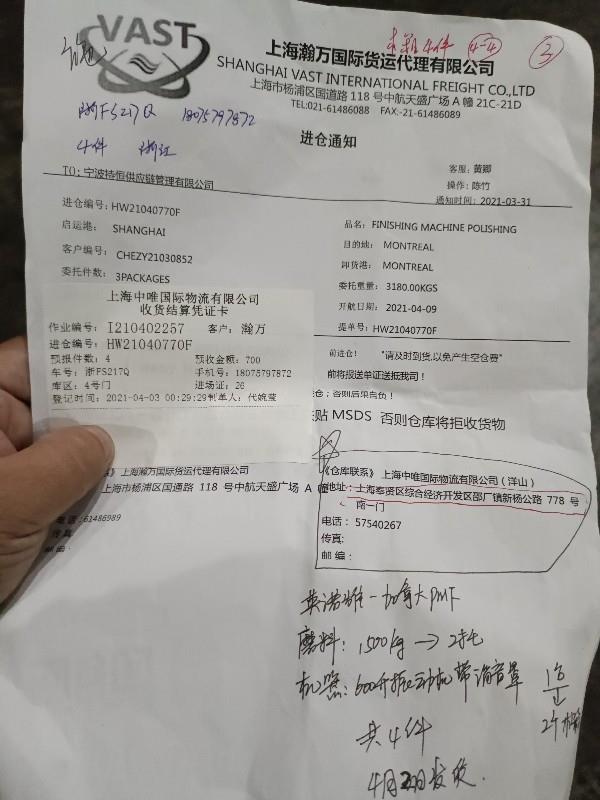 VAST
上海瀚万国际货运代理有限公司
SHANGHAI VAST INTERNATIONAL FREIGHT CO.,LTD
上海市杨浦区国道路 118 号中航天盛广场 A 幢 21C-21D
TEL:021-61486088 FAX:-21-61486089
4件 4-4 3
浙FS217Q 18075797872
4件 浙江
进仓通知
TO: 宁波持恒供应链管理有限公司
客服：黄卿
操作：陈竹
通知时间：2021-03-31
进仓编号：HW21040770F
启运港： SHANGHAI
客户编号： CHEZY21030852
委托件数： 3PACKAGES
品名： FINISHING MACHINE POLISHING
目的地： MONTREAL
卸货港： MONTREAL
委托重量： 3180.00KGS
开航日期： 2021-04-09
提单号： HW21040770F
上海中唯国际物流有限公司
收货结算凭证卡
作业编号： I210402257 客户： 瀚万
进仓编号： HW21040770F
预报件数： 4 预收金额： 700
车号： 浙FS217Q 手机号： 18075797872
库区： 4号门 进场证： 26
登记时间： 2021-04-03 00:29:29 制单人： 代婉莹
前进仓！ "请及时到货,以免产生空仓费"
前将报送单证送抵我司！
否则后果自负！
贴 MSDS 否则仓库将拒收货物
》上海瀚万国际货运代理有限公司
上海市杨浦区国通路 118 号中航天盛广场 A 幢
电话：61486989
传真：
《仓库联系》上海中唯国际物流有限公司（洋山）
地址： 上海奉贤区综合经济开发区邵厂镇新杨公路 778 号
南一门
电话： 57540267
传真:
邮编：
英诺雅一加拿大PMF
磨料：1500kg → 2托
机器：600升振动机带消音罩
共4件
4月2日发货.